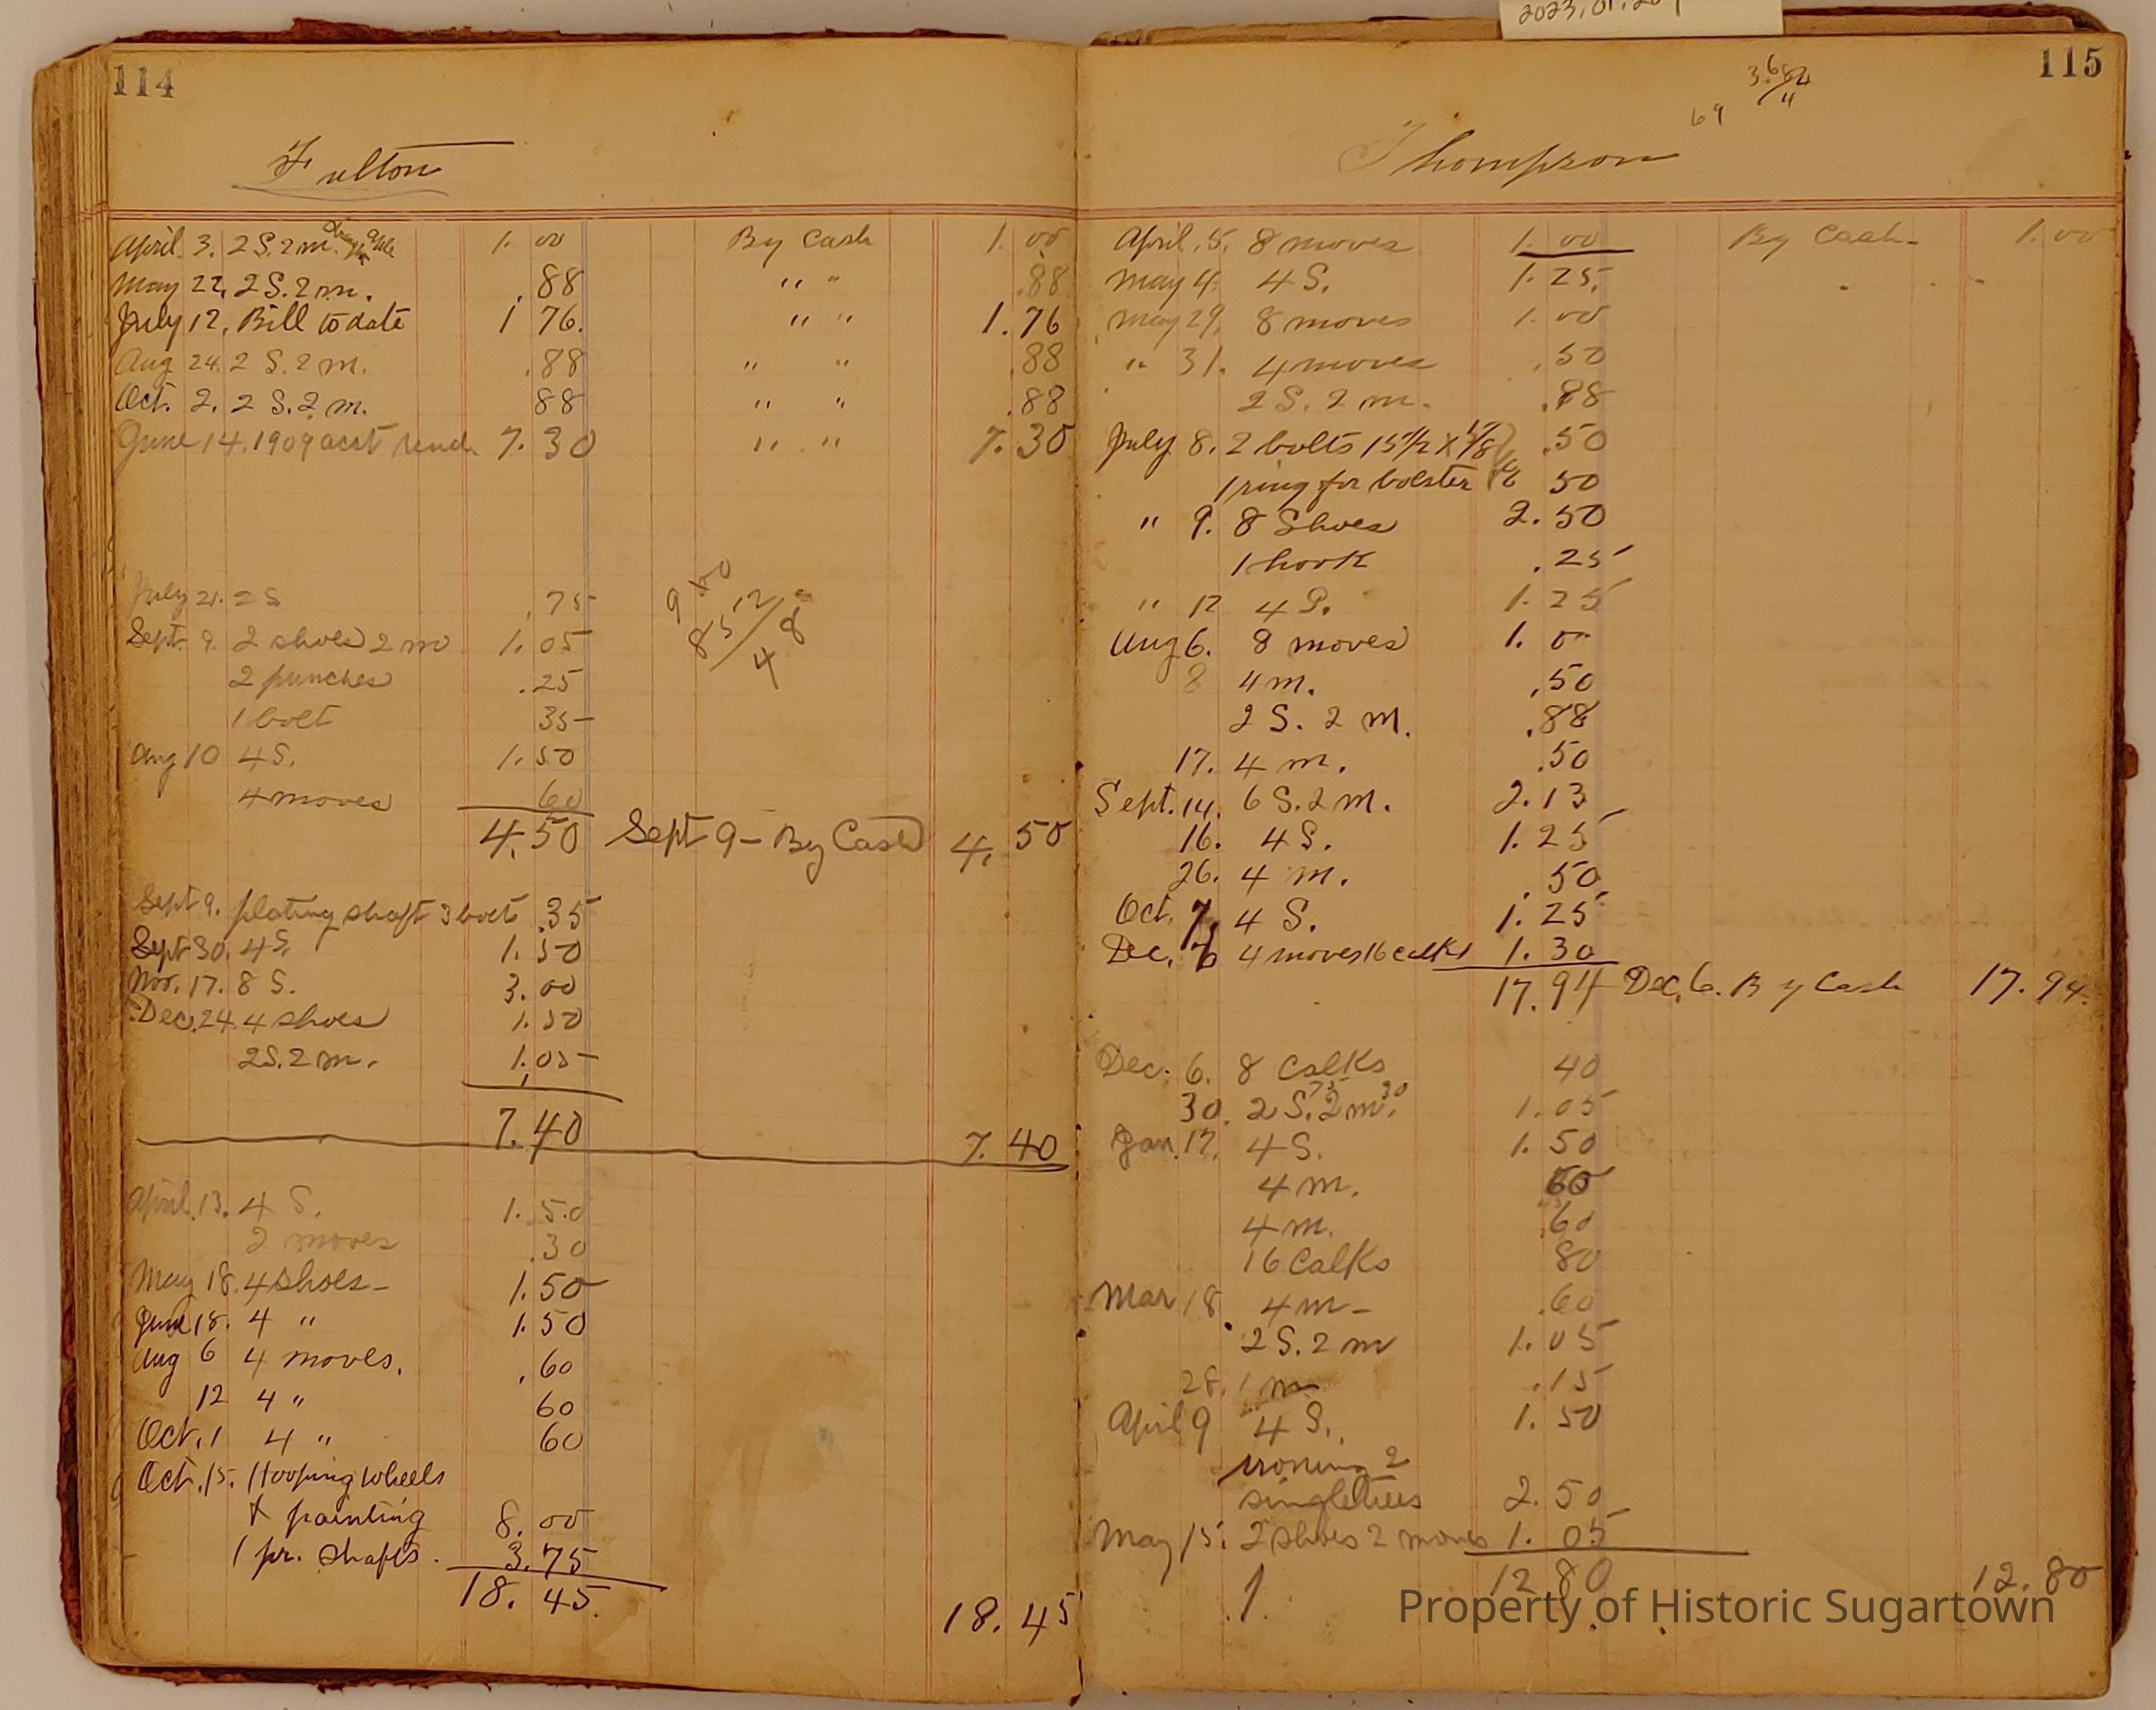 2023.01.20
114
Fulton
April 3. 2 S. 2 m. 1.00 By Cash 1.00
May 22, 2 S. 2 m. .88 " " .88
July 12, Bill to date 1 76. " " 1.76
Aug 24. 2 S. 2 m. .88 " " .88
Oct. 2. 2 S. 2 m. 88 " " .88
June 14. 1909 acct rend. 7.30 " " 7.30
July 21. 2 S .75
Sept. 9. 2 shoes 2 mo 1.05
2 punches .25
1 bolt 35
Aug 10 4 S. 1.50
4 moves 60
4.50 Sept 9 - By Cash 4.50
Sept 9. plating shaft 3 bolts .35
Sept 30. 4 S. 1.50
Nov. 17. 8 S. 3.00
Dec. 24. 4 shoes 1.50
2 S. 2 m. 1.05
7.40 7.40
April 13. 4 S. 1.50
2 moves .30
May 18. 4 shoes - 1.50
June 18. 4 " 1.50
Aug 6 4 moves. .60
12 4 " 60
Oct. 1 4 " 60
Oct. 15. Hooping wheels
& painting 8.00
1 pr. shafts. 3.75
18.45. 18.45
115
69
Thompson
April. 5. 8 moves 1.00 By Cash - 1.00
May 4. 4 S. 1.25.
May 29, 8 moves 1.00
" 31. 4 moves .50
2 S. 2 m. .88
July 8. 2 bolts 15 1/2 X .50
1 ring for bolster 50
" 9. 8 Shoes 2.50
1 hook .25
" 12 4 S. 1.25
Aug 6. 8 moves 1.0
8 4 m. .50
2 S. 2 m. .88
17. 4 m. .50
Sept. 14. 6 S. 2 m. 2.13
16. 4 S. 1.25
26. 4 m. .50
Oct. 7, 4 S. 1.25
Dec. 6 4 moves 16 calks 1.30
17.94 Dec. 6. By Cash 17.94.
Dec. 6. 8 Calks 40
30. 2 S. 75 2 m. 30 1.05
Jan. 17. 4 S. 1.50
4 m. 60
4 m. .60
16 Calks 80
Mar 18 4 m - .60
2 S. 2 m 1.05
28. 1 m .15
April 9 4 S. 1.50
ironing 2
singletrees 2.50
May 15. 2 shoes 2 moves 1.05
1. 12 80 12.80
Property of Historic Sugartown